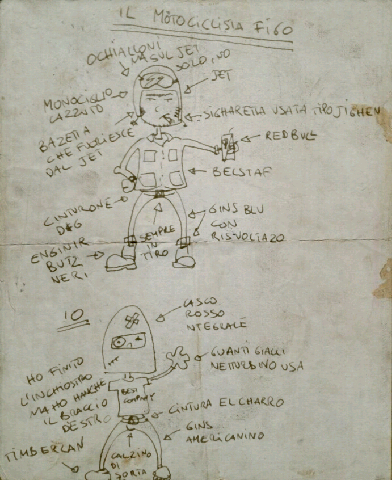 IL MOTOCICLISTA FIGO
OCHIALLONI
DA SUL JET
SOLO, NO
JET
MONOCIGLIO
CAZZUTO
SIGHARETTA USATA TIRO JIGHEN
BAZETTA
CHE FUORIESCE
DAL JET
REDBULL
BELSTAF
CINTURONE
D&G
GINS BLU
CON
RISVOLTAZO
SEMPRE
IN
TIRO
ENGINIR
BUTZ
NERI
IO
CASCO
ROSSO
NTEGRALE
GUANTI GIALLI
NETTURBINO USA
HO FINITO
L'INCHIOSTRO
MA HO HANCHE
IL BRACCIO
DESTRO
BEST
COMPANY
CINTURA EL CHARRO
GINS
AMERICANINO
TIMBERLAN
CALZINO
DI
SORTA